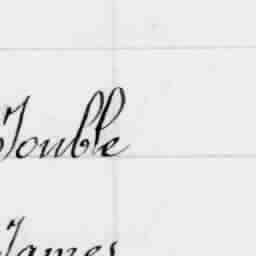 Touble
James